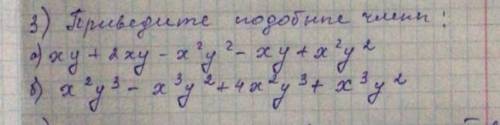 3) Приведите подобные члены:
а) xy + 2xy - x²y² - xy + x²y²
б) x²y³ - x³y² + 4x²y³ + x³y²